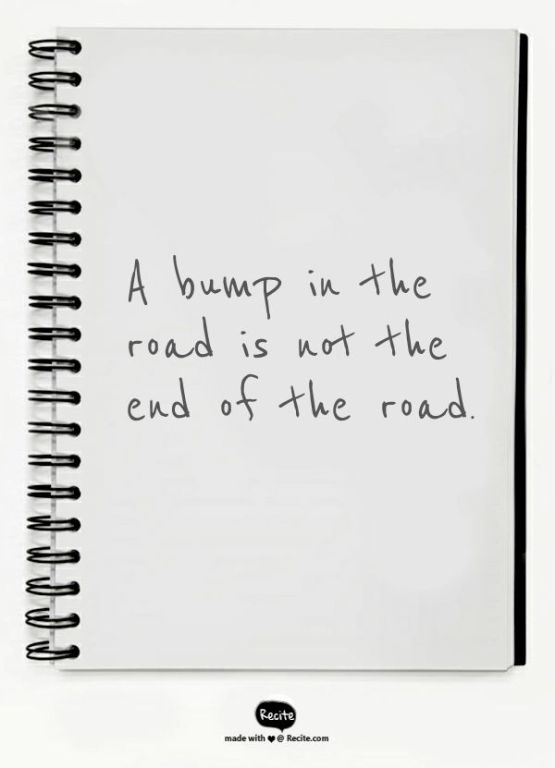 A bump in the
road is not the
end of the road.
Recite
made with ♥ @ Recite.com